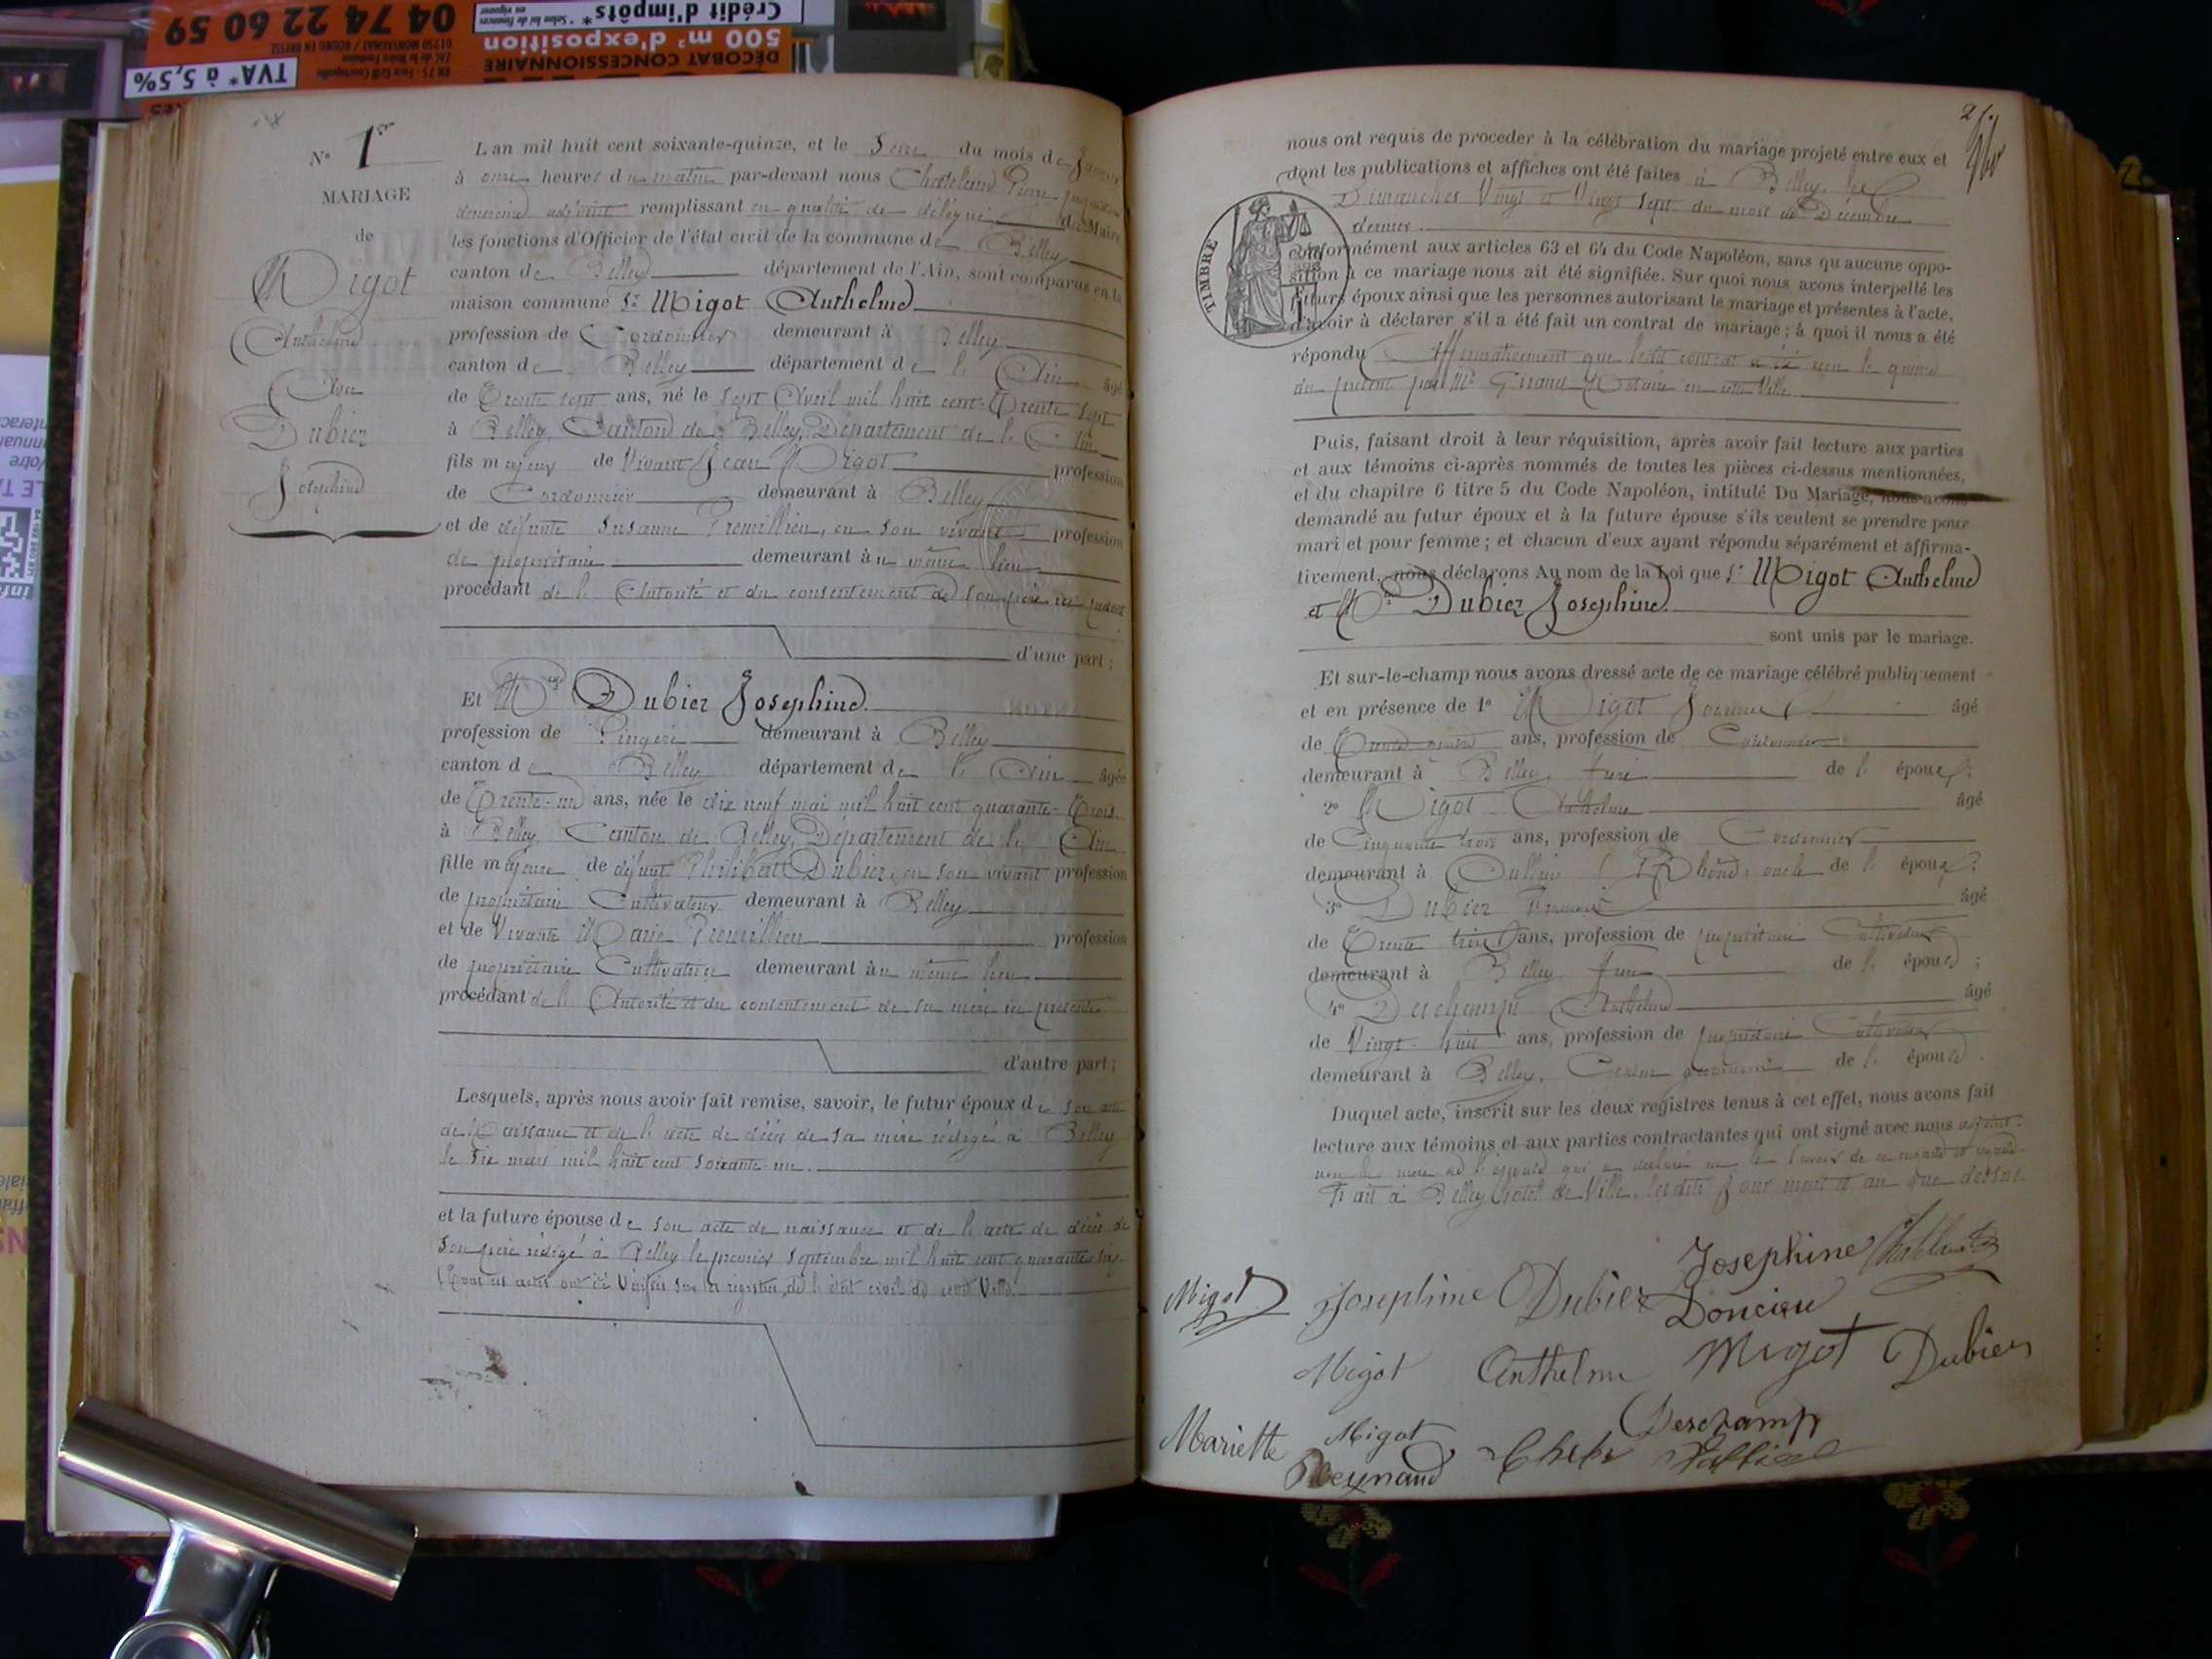 04 74 22 60 59
Crédit d'impôts*
* Selon loi de finances en vigueur
500 m² d'exposition
DÉCOBAT CONCESSIONNAIRE
TVA* à 5,5%
N° 1er
MARIAGE
de
Migot
Anthelme
Avec
Dubiez
Josephine
L'an mil huit cent soixante-quinze, et le Seize du mois de Janvier
à onze heures du matin par-devant nous Chateland Pierre
adjoint remplissant en qualité de délégué du Maire
les fonctions d'Officier de l'état civil de la commune de Belley
canton de Belley département de l'Ain, sont comparus en la
maison commune Sr Migot Anthelme
profession de Cordonnier demeurant à Belley
canton de Belley département de l'Ain âgé
de Trente sept ans, né le sept Avril mil huit cent Trente sept
à Belley, Canton de Belley, Département de l'Ain
fils majeur de Vivant Jean Migot profession
de Cordonnier demeurant à Belley
et de défunte Susanne Premillieu, en son vivant profession
de propriétaire demeurant au même lieu
procédant de l'Autorité et du consentement de son père ici présent
d'une part ;
Et Mlle Dubiez Josephine.
profession de Lingère demeurant à Belley
canton de Belley département de l'Ain âgée
de Trente-un ans, née le dix neuf mai mil huit cent quarante-Trois
à Belley, Canton de Belley, Département de l'Ain
fille majeure de défunt Philibert Dubiez, en son vivant profession
de propriétaire Cultivateur demeurant à Belley
et de Vivante Marie Premillieu profession
de propriétaire Cultivatrice demeurant au même lieu
procédant de l'Autorité et du consentement de sa mère ici présente
d'autre part ;
Lesquels, après nous avoir fait remise, savoir, le futur époux de son acte
de Naissance et de l'acte de décès de sa mère rédigé à Belley
le Six mars mil huit cent soixante-un.
et la future épouse de son acte de naissance et de l'acte de décès de
son père rédigé à Belley le premier Septembre mil huit cent quarante six.
(Tous ces actes ont été Vérifiés sur les registres de l'état civil de cette Ville.
nous ont requis de proceder à la célébration du mariage projeté entre eux et
dont les publications et affiches ont été faites à Belley les
Dimanches Vingt et Vingt sept du mois de Décembre
dernier.
TIMBRE
conformément aux articles 63 et 64 du Code Napoléon, sans qu'aucune oppo-
sition à ce mariage nous ait été signifiée. Sur quoi nous avons interpellé les
futurs époux ainsi que les personnes autorisant le mariage et présentes à l'acte,
d'avoir à déclarer s'il a été fait un contrat de mariage ; à quoi il nous a été
répondu Affirmativement que ledit contrat a été reçu le quinze
du présent par Me Girand Notaire en cette Ville.
Puis, faisant droit à leur réquisition, après avoir fait lecture aux parties
et aux témoins ci-après nommés de toutes les pièces ci-dessus mentionnées,
et du chapitre 6 titre 5 du Code Napoléon, intitulé Du Mariage, nous avons
demandé au futur époux et à la future épouse s'ils veulent se prendre pour
mari et pour femme ; et chacun d'eux ayant répondu séparément et affirma-
tivement, nous déclarons Au nom de la Loi que Sr Migot Anthelme
et Mlle Dubiez Josephine.
sont unis par le mariage.
Et sur-le-champ nous avons dressé acte de ce mariage célébré publiquement
et en présence de 1° Migot âgé
de Trente ans, profession de Cordonnier
demeurant à Belley, frère de l'époux ;
2° Migot Anthelme âgé
de Cinquante trois ans, profession de Cordonnier
demeurant à Oullins Rhône, oncle de l'époux ;
3° Dubiez âgé
de Trente trois ans, profession de propriétaire Cultivateur
demeurant à Belley, frère de l'épouse ;
4° Deschamps Anthelme âgé
de Vingt-huit ans, profession de propriétaire Cultivateur
demeurant à Belley, Cousin germain de l'épouse.
Duquel acte, inscrit sur les deux registres tenus à cet effet, nous avons fait
lecture aux témoins et aux parties contractantes qui ont signé avec nous adjoint.
non la mère de l'épouse qui a déclaré ne le savoir de ce enquise et requise
Fait à Belley, hôtel de Ville, lesdits Jour mois et an que dessus.
Josephine Chateland
Migot Josephine Dubiez Doncieu
Migot Anthelme Migot Dubiez
Mariette Migot Deschamps
Reynaud